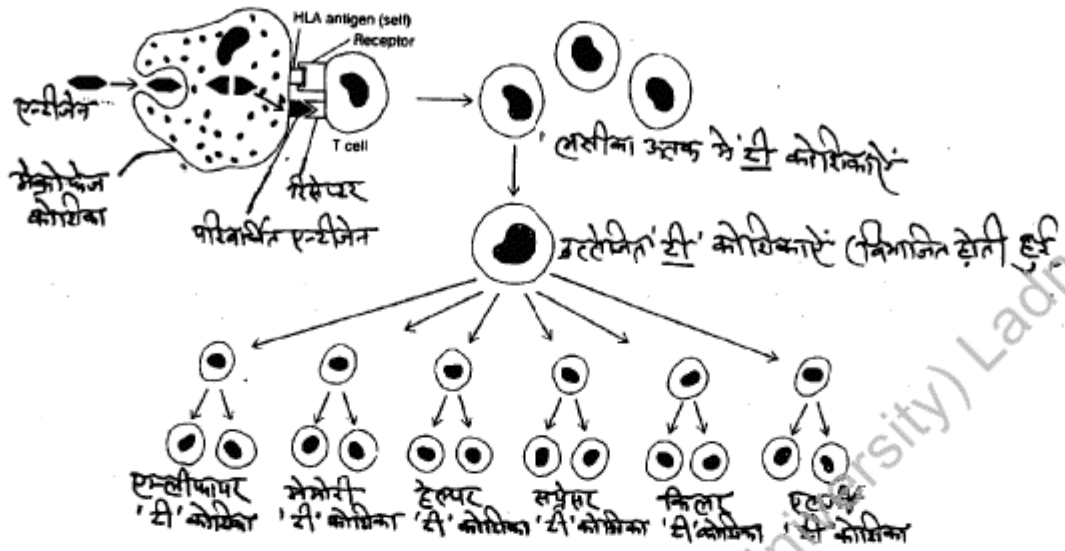 HLA antigen (self)
Receptor
एन्टीजेन
T cell
मेक्रोफेज
कोशिका
रिसेप्टर
परिवर्धित एन्टीजेन
लसीका ऊतक में 'टी' कोशिकाऐं
उत्तेजित 'टी' कोशिकाऐं (विभाजित होती हुई
एम्लीफायर
'टी' कोशिका
मेमोरी
'टी' कोशिका
हेल्पर
'टी' कोशिका
सप्रेसर
'टी' कोशिका
किलर
'टी' कोशिका
'टी' कोशिका
University) Ladn